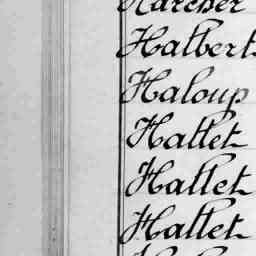 Karcher
Halbert
Haloup
Hallet
Hallet
Hallet